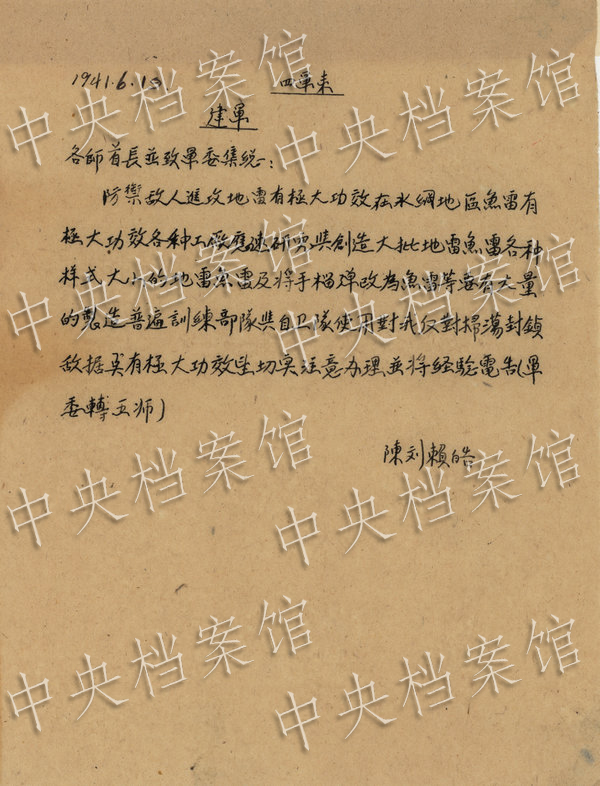 1941.6.15 四軍来
建軍
各師首長並致軍委集総：
防禦敌人進攻地雷有極大功效在水網地區魚雷有
極大功效各种工廠應速研究與創造大批地雷魚雷各种
样式大小的地雷魚雷及将手榴弹改為魚雷等要有大量
的製造普遍訓練部隊與自卫隊使用對 對掃蕩封鎖
敌据 有極大功效望切实注意办理並将經驗電告(軍
委轉五师)
陳刘賴皓
中央档案馆
中央档案馆
中央档案馆
中央档案馆
中央档案馆
中央档案馆
中央档案馆
中央档案馆